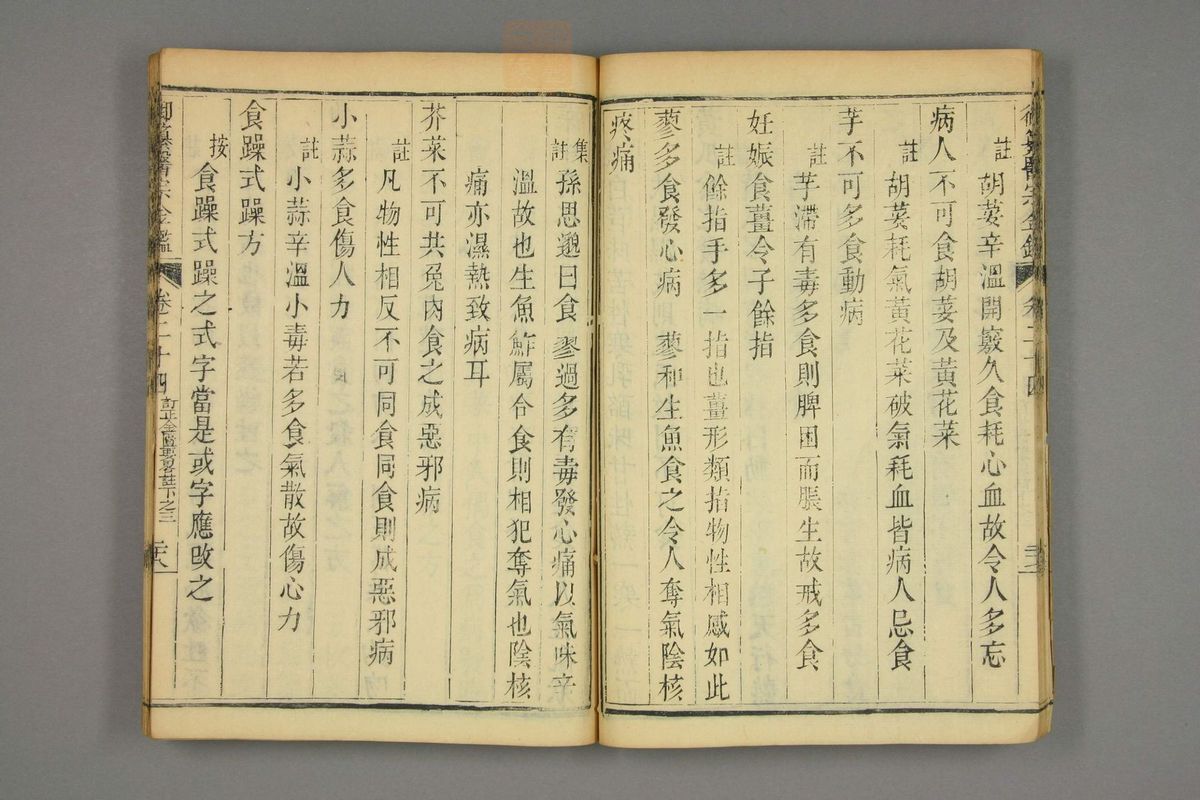 御纂醫宗金鑑 卷二十四
註胡荽辛溫開竅久食耗心血故令人多忘
病人不可食胡荽及黃花菜
註胡荽耗氣黃花菜破氣耗血皆病人忌食
芋不可多食動病
註芋滯有毒多食則脾困而脹生故戒多食
妊娠食薑令子餘指
註餘指手多一指也薑形類指物性相感如此
蓼多食發心病 蓼和生魚食之令人奪氣陰核
疼痛
集註孫思邈曰食蓼過多有毒發心痛以氣味辛
溫故也生魚鮓屬合食則相犯奪氣也陰核
痛亦濕熱致病耳
芥菜不可共兔肉食之成惡邪病
註凡物性相反不可同食同食則成惡邪病
小蒜多食傷人力
註小蒜辛溫小毒若多食氣散故傷心力
食躁式躁方
按食躁式躁之式字當是或字應改之
御纂醫宗金鑑 卷二十四 訂正金匱要畧註下之三 二十八